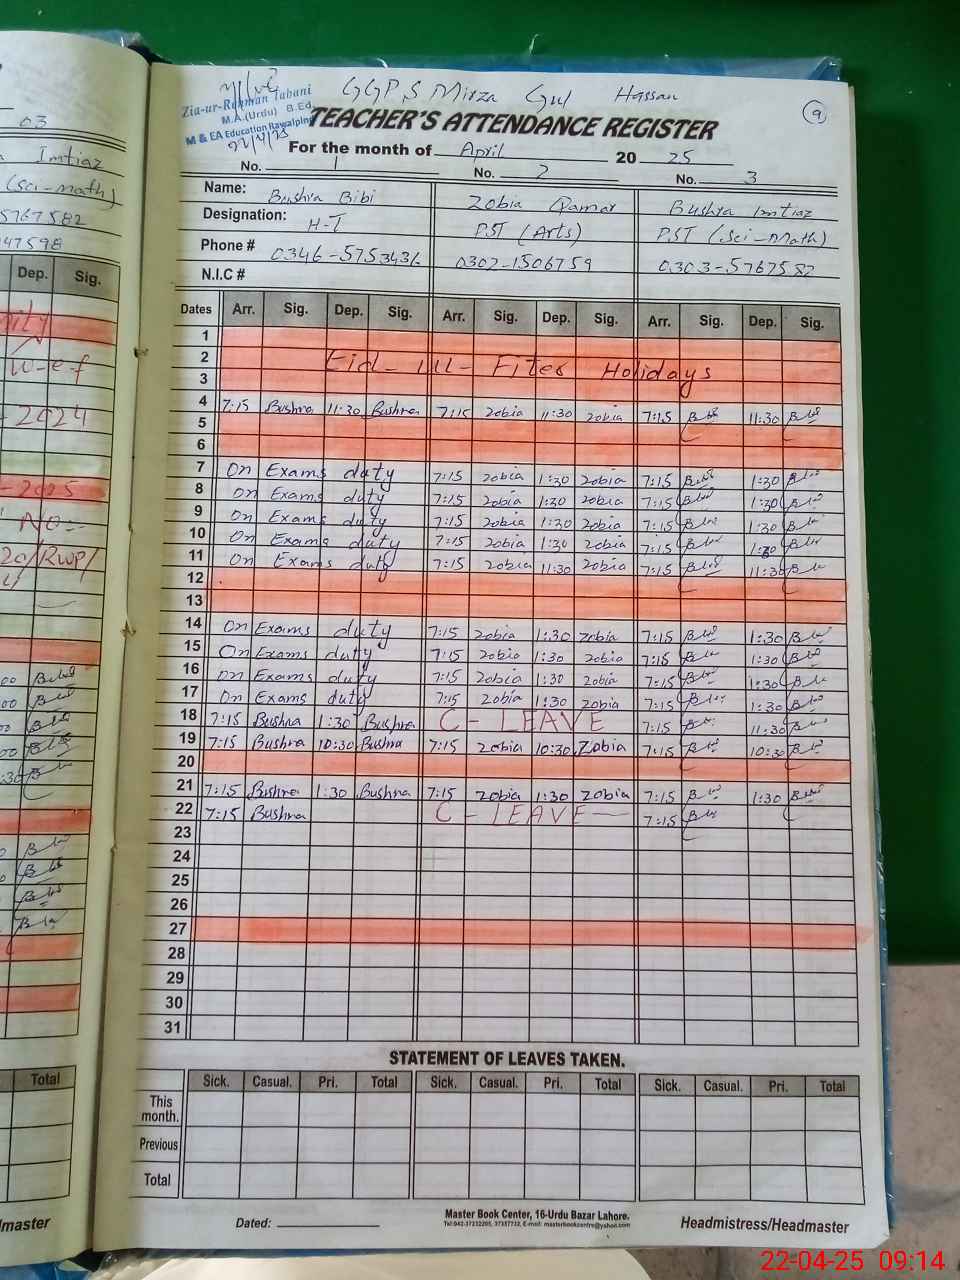 GGPS Mirza Gul Hassan
9
Zia-ur-Rehman Tabani
M.A.(Urdu) B.Ed.
M & EA Education Rawalpindi
22/4/25
TEACHER'S ATTENDANCE REGISTER
For the month of April 2025
No. 1 No. 2 No. 3
Name: Bushra Bibi Zobia Qamar Bushra Imtiaz
Designation: H-T PST (Arts) PST (Sci-Math)
Phone # 0346-5753436 0302-1506759 0303-5767582
N.I.C #
Dates Arr. Sig. Dep. Sig. Arr. Sig. Dep. Sig. Arr. Sig. Dep. Sig.
1
2 Eid-Ul-Fiter Holidays
3
4 7:15 Bushra 11:30 Bushra 7:15 Zobia 11:30 Zobia 7:15 11:30
5
6
7 On Exams duty 7:15 Zobia 1:30 Zobia 7:15 1:30
8 On Exams duty 7:15 Zobia 1:30 Zobia 7:15 1:30
9 On Exams duty 7:15 Zobia 1:30 Zobia 7:15 1:30
10 On Exams duty 7:15 Zobia 1:30 Zobia 7:15 1:30
11 On Exams duty 7:15 Zobia 11:30 Zobia 7:15 11:30
12
13
14 On Exams duty 7:15 Zobia 1:30 Zobia 7:15 1:30
15 On Exams duty 7:15 Zobia 1:30 Zobia 7:15 1:30
16 On Exams duty 7:15 Zobia 1:30 Zobia 7:15 1:30
17 On Exams duty 7:15 Zobia 1:30 Zobia 7:15 1:30
18 7:15 Bushra 1:30 Bushra C-LEAVE 7:15 11:30
19 7:15 Bushra 10:30 Bushra 7:15 Zobia 10:30 Zobia 7:15 10:30
20
21 7:15 Bushra 1:30 Bushra 7:15 Zobia 1:30 Zobia 7:15 1:30
22 7:15 Bushra C-LEAVE 7:15
23
24
25
26
27
28
29
30
31
STATEMENT OF LEAVES TAKEN.
Sick. Casual. Pri. Total Sick. Casual. Pri. Total Sick. Casual. Pri. Total
This month.
Previous
Total
Master Book Center, 16-Urdu Bazar Lahore.
Dated: Headmistress/Headmaster
03
Imtiaz
(Sci-math)
5767582
47598
Dep. Sig.
w-e-f
2024
-2025
No
20/RWP/
Total
master
22-04-25 09:14